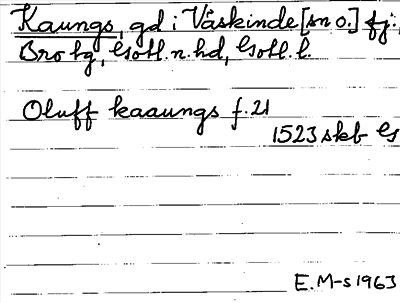 Kaungs, gd i Väskinde [sn o.] fj:,
Bro tg, Gotl. n. hd, Gotl. l.
Oluff kaaungs f. 21
1523 skb G
E. M-s 1963